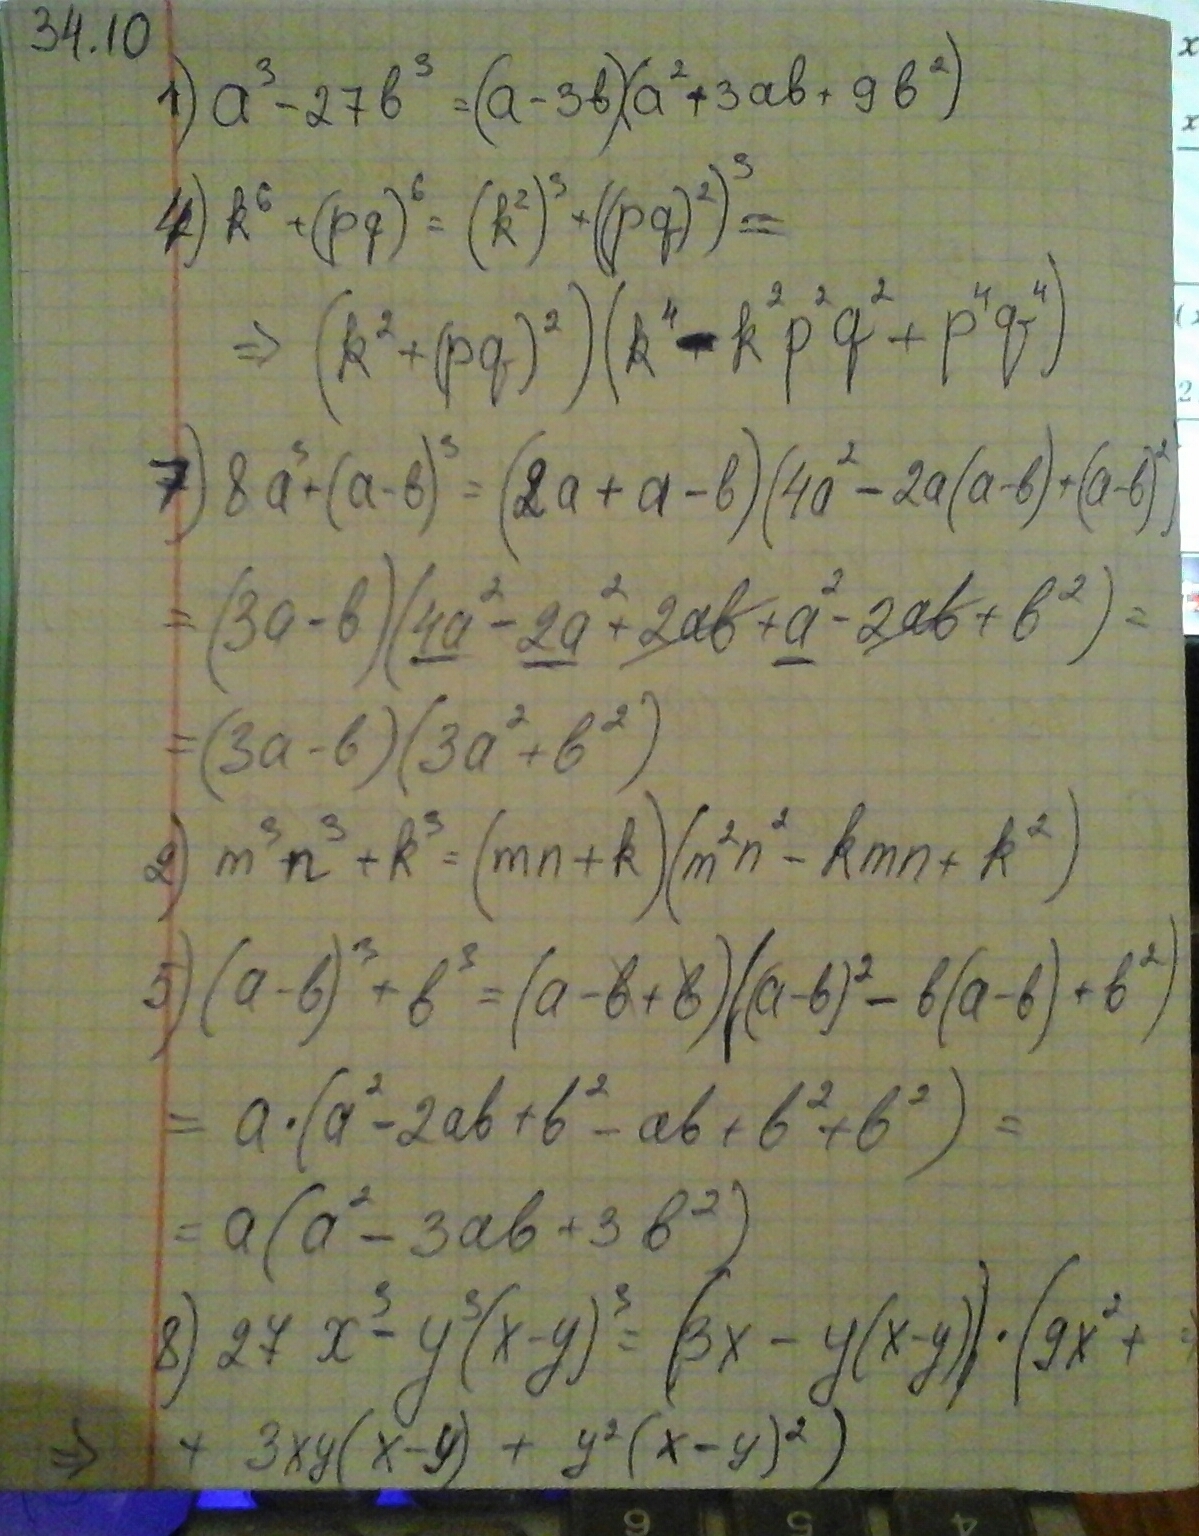 34.10
1) a³ - 27в³ = (a - 3в)(a² + 3aв + 9в²)
4) k⁶ + (pq)⁶ = (k²)³ + ((pq)²)³ =
⇒ (k² + (pq)²)(k⁴ - k²p²q² + p⁴q⁴)
7) 8a³ + (a-в)³ = (2a + a - в)(4a² - 2a(a-в) + (a-в)²)
= (3a - в)(4a² - 2a² + 2aв + a² - 2aв + в²) =
= (3a - в)(3a² + в²)
2) m³n³ + k³ = (mn + k)(m²n² - kmn + k²)
5) (a-в)³ + в³ = (a - в + в)((a-в)² - в(a-в) + в²)
= a·(a² - 2aв + в² - aв + в² + в²) =
= a(a² - 3aв + 3в²)
8) 27x³ - y³(x-y)³ = (3x - y(x-y))·(9x² +
⇒ + 3xy(x-y) + y²(x-y)²)
6 5 4